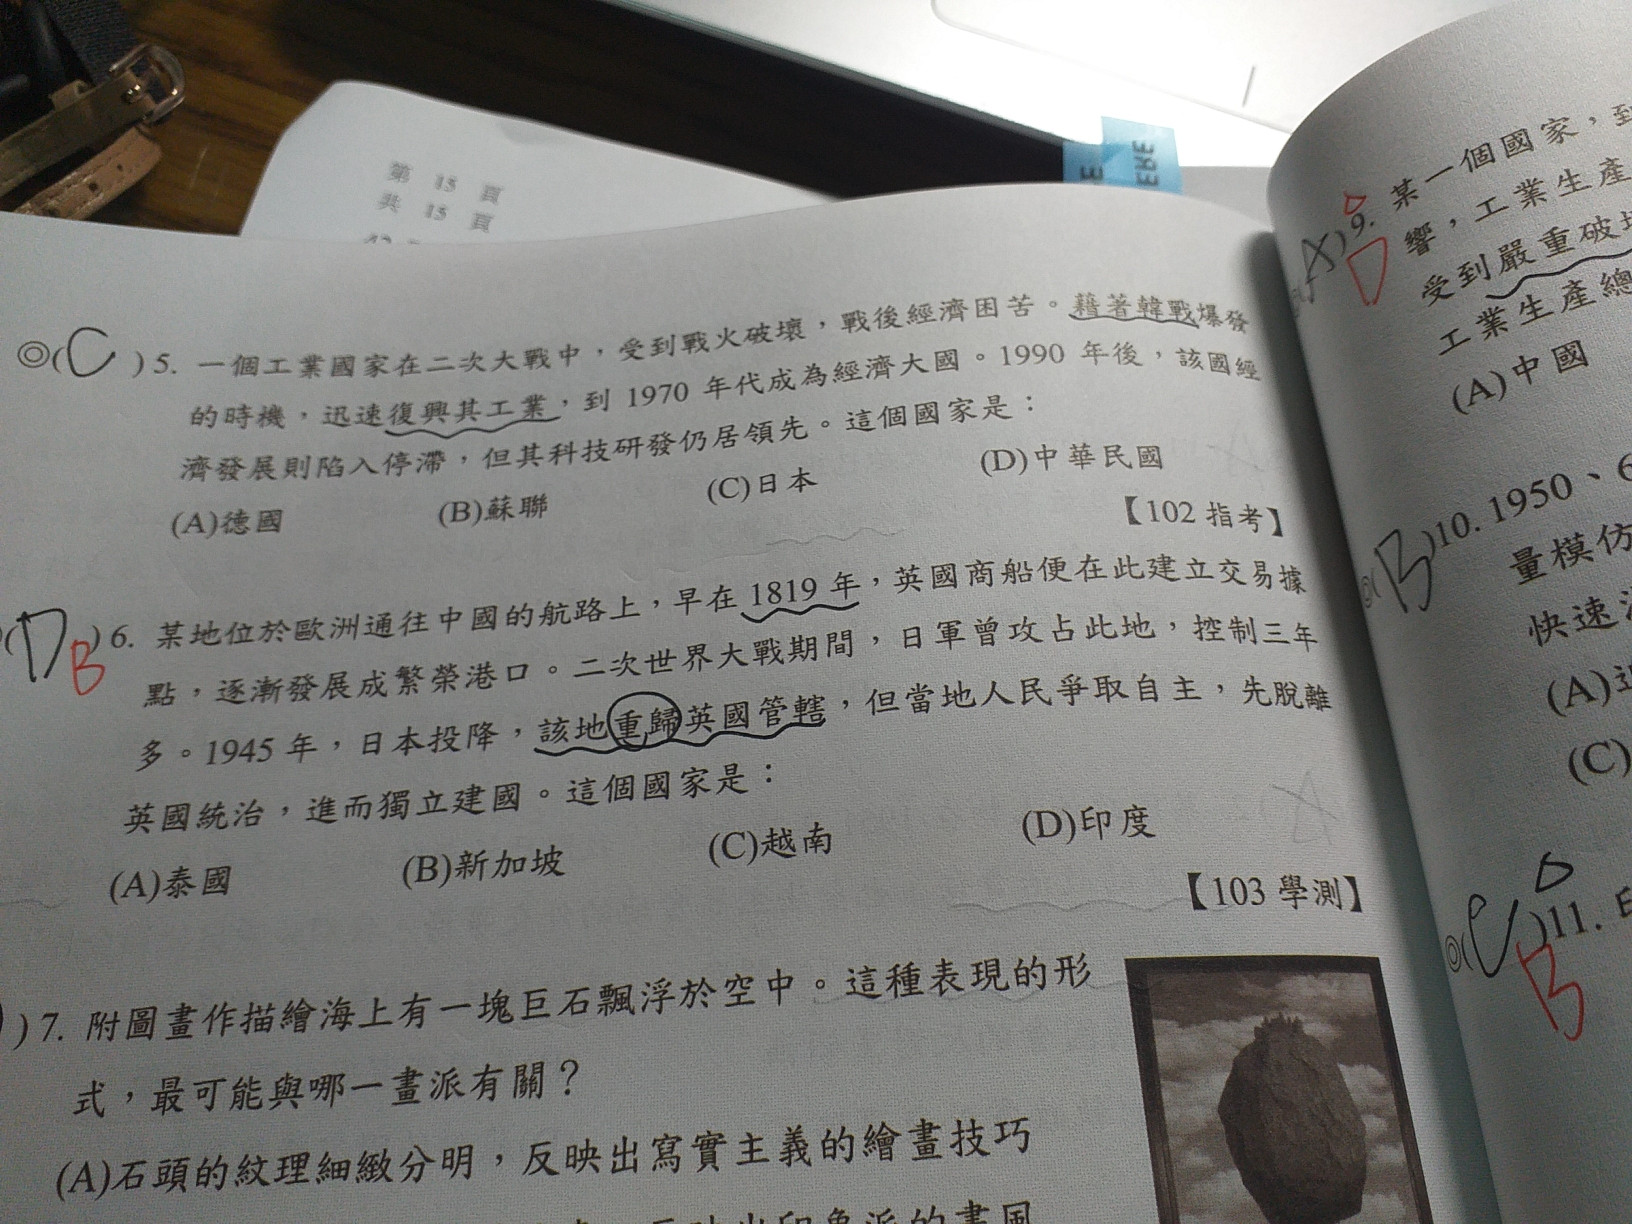 第 15 頁
共 15 頁
◎( C )5. 一個工業國家在二次大戰中，受到戰火破壞，戰後經濟困苦。藉著韓戰爆發
的時機，迅速復興其工業，到 1970 年代成為經濟大國。1990 年後，該國經
濟發展則陷入停滯，但其科技研發仍居領先。這個國家是：
(A)德國 (B)蘇聯 (C)日本 (D)中華民國
【102 指考】
(D B )6. 某地位於歐洲通往中國的航路上，早在 1819 年，英國商船便在此建立交易據
點，逐漸發展成繁榮港口。二次世界大戰期間，日軍曾攻占此地，控制三年
多。1945 年，日本投降，該地重歸英國管轄，但當地人民爭取自主，先脫離
英國統治，進而獨立建國。這個國家是：
(A)泰國 (B)新加坡 (C)越南 (D)印度
【103 學測】
)7. 附圖畫作描繪海上有一塊巨石飄浮於空中。這種表現的形
式，最可能與哪一畫派有關？
(A)石頭的紋理細緻分明，反映出寫實主義的繪畫技巧
印象派的畫風
(A D)9. 某一個國家，到
響，工業生產
受到嚴重破壞
工業生產總
(A)中國
◎( B )10. 1950、6
量模仿
快速
(A)
(C)
◎( C B )11.